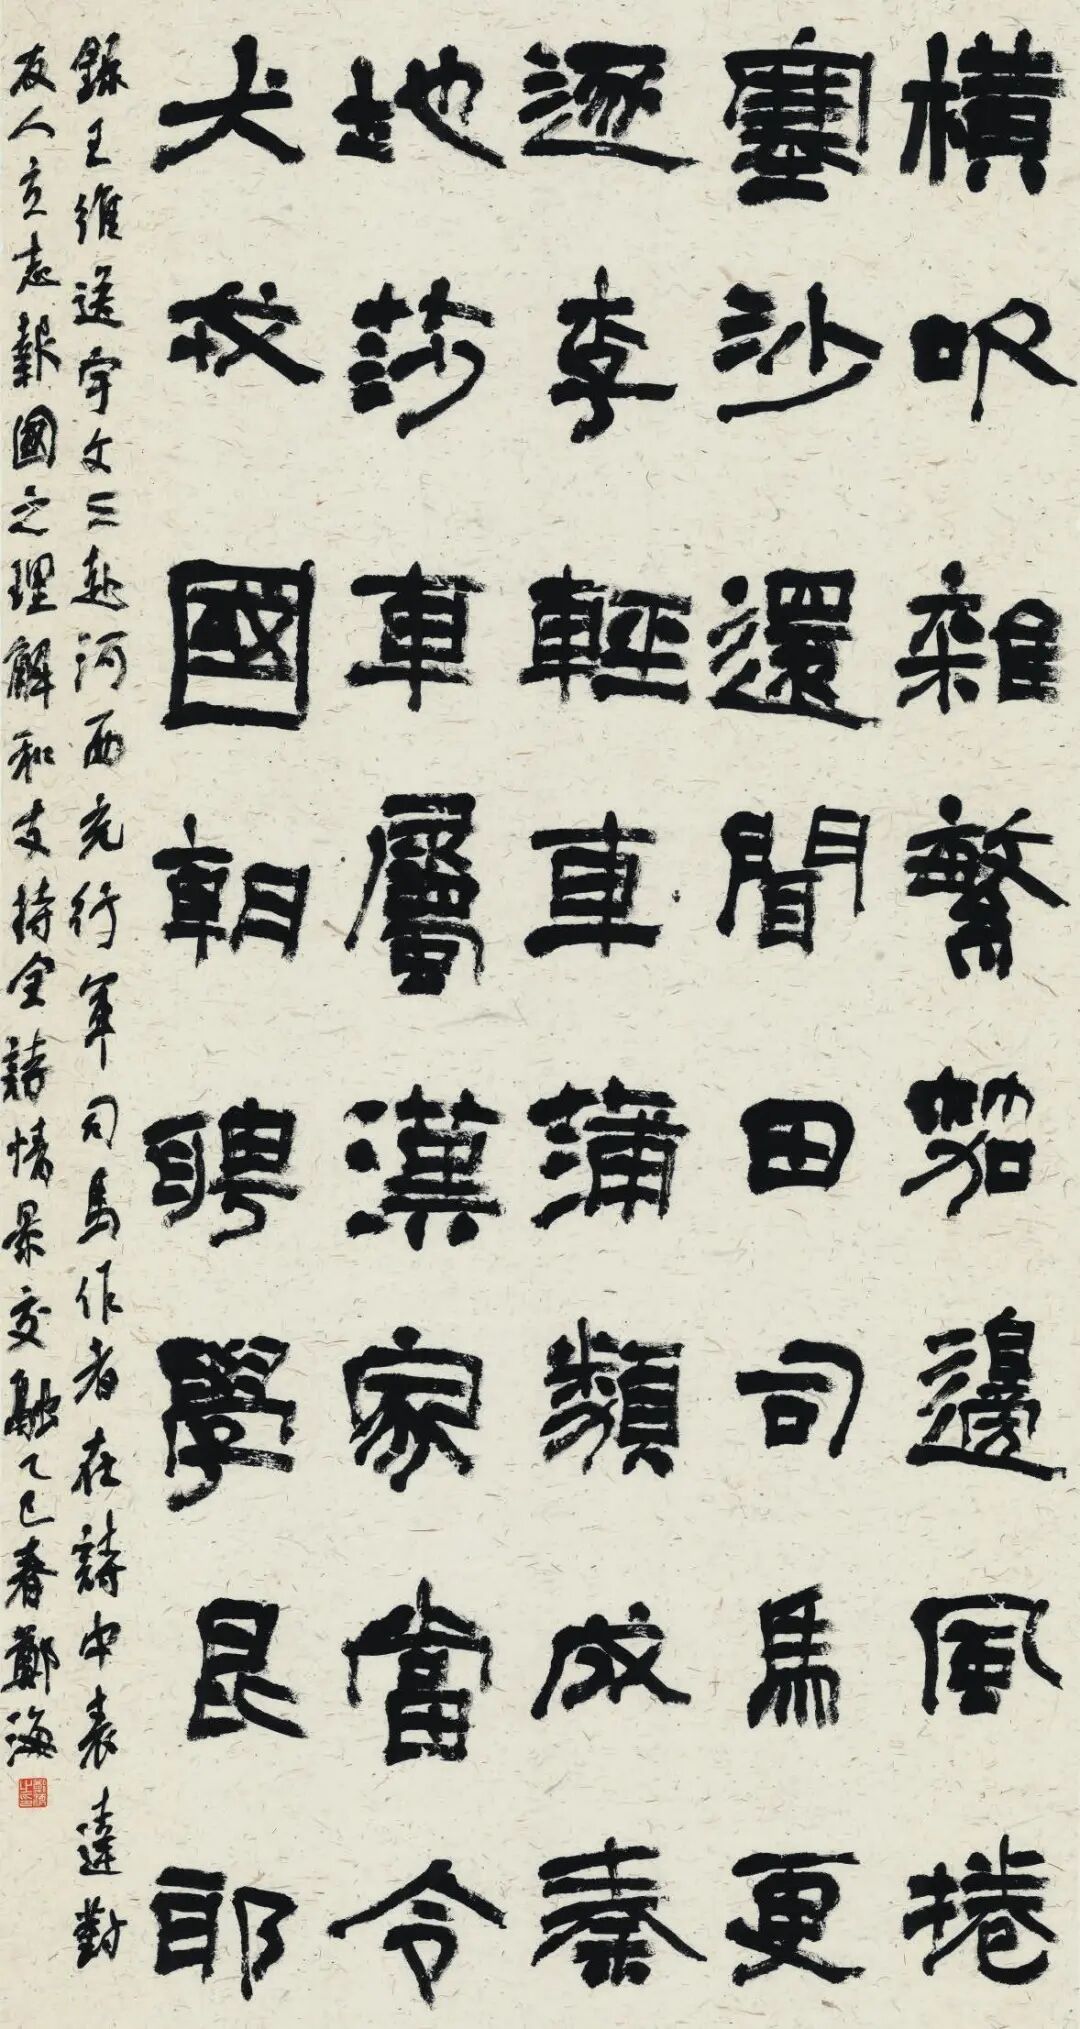 橫吹雜繁笳邊風捲
塞沙還聞田司馬更
逐李輕車蒲類成秦
地莎車屬漢家當令
犬戎國朝聘學昆耶
錄王維送宇文三赴河西充行軍司馬作者在詩中表達對
友人立志報國之理解和支持全詩情景交融乙巳春鄭海